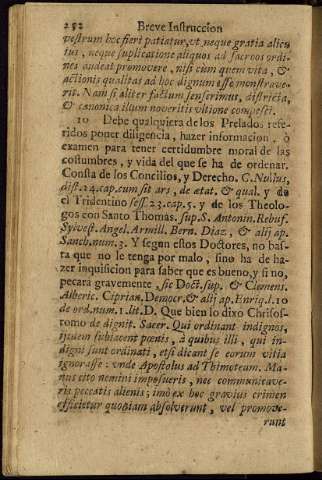 252 Breve Instruccion
vestrum hoc fieri patiatur, vt neque gratia alicu
ius, neque suplicatione aliquos ad sacros ordi-
nes audeat promovere, nisi cum quem vita, &
actionis qualitas ad hoc dignum esse monstrave-
rit. Nam si aliter factum senserimus, districta,
& canonica illum noveritis vltione compesci.
10 Debe qualquiera de los Prelados refe-
ridos poner diligencia, hazer informacion, ò
examen para tener certidumbre moral de las
costumbres, y vida del que se ha de ordenar.
Consta de los Concilios, y Derecho. C. Nullus,
dist. 24. cap. cum sit ars, de ætat. & qual. y de
el Tridentino sess. 23. cap. 5. y de los Theolo-
gos con Santo Thomas. sup. S. Antonin. Rebuf.
Sylvest. Angel. Armill. Bern. Diaz, & alij ap.
Sanch. num. 3. Y segun estos Doctores, no bas-
ta que no le tenga por malo, sino ha de ha-
zer inquisicion para saber que es bueno, y si no,
pecara gravemente, sic Doct. sup. & Clemens.
Alberic. Ciprian. Democr. & alij ap. Enriq. l. 10
de ord. num. 1. lit. D. Que bien lo dixo Chrisos-
tomo de dignit. Sacer. Qui ordinant indignos,
ijsdem subiacent pœnis, à quibus illi, qui in-
digni sunt ordinati, etsi dicant se eorum vitia
ignorasse: vnde Apostolus ad Thimoteum. Ma-
nus cito nemini imposueris, nec communicave-
ris peccatis alienis; imò ex hoc gravius crimen
efficietur quoniam absolverunt, vel promove-
runt